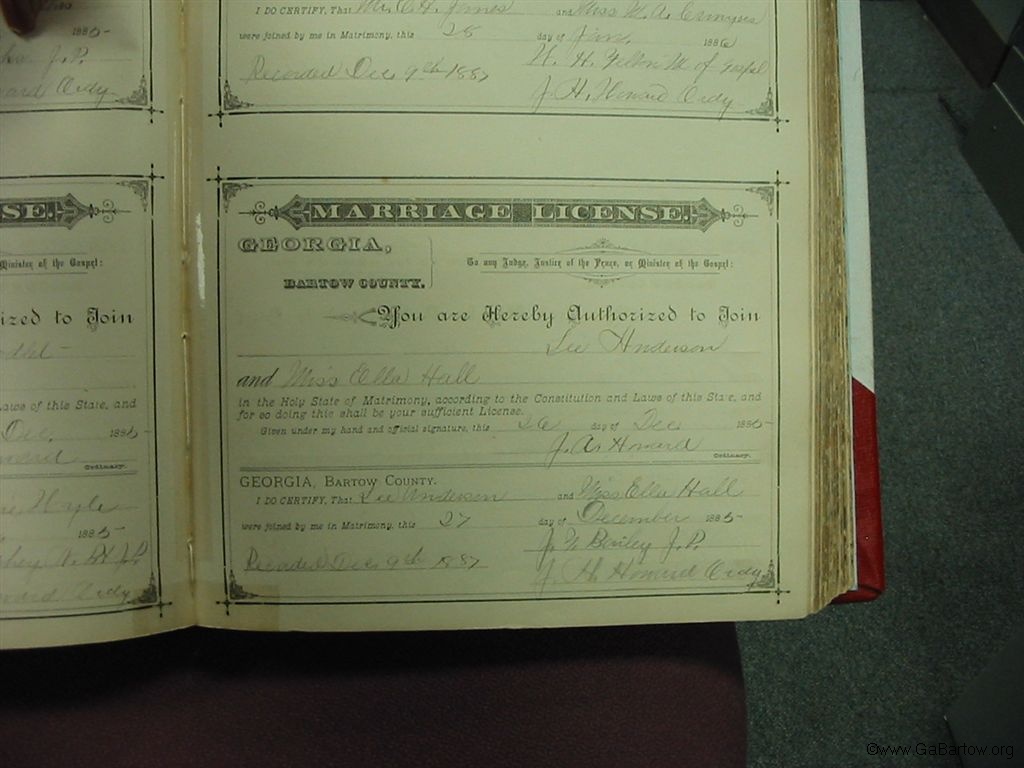 1885-
J. P.
Ordy
SE.
Minister of the Gospel:
ized to Join
Laws of this State, and
Dec. 1885-
Ordinary.
Hoyle
1885-
N. P. J. P.
Ordy
I DO CERTIFY, That Mr. C. H. Jones and Miss M. A.
were joined by me in Matrimony, this 28 day of Jan. 1886
W. H. Felton M. of Gospel
Recorded Dec 9th 1887
J. H. Howard Ordy
MARRIAGE LICENSE.
GEORGIA,
BARTOW COUNTY.
To any Judge, Justice of the Peace, or Minister of the Gospel:
You are Hereby Authorized to Join
Lee Anderson
and Miss Ella Hall
in the Holy State of Matrimony, according to the Constitution and Laws of this State, and
for so doing this shall be your sufficient License.
Given under my hand and official signature, this 26 day of Dec 1885-
J. A. Howard Ordinary.
GEORGIA, BARTOW COUNTY.
I DO CERTIFY, That Lee Anderson and Miss Ella Hall
were joined by me in Matrimony, this 27 day of December 1885-
J. P.
Recorded Dec 9th 1887
J. H. Howard Ordy
©www.GaBartow.org